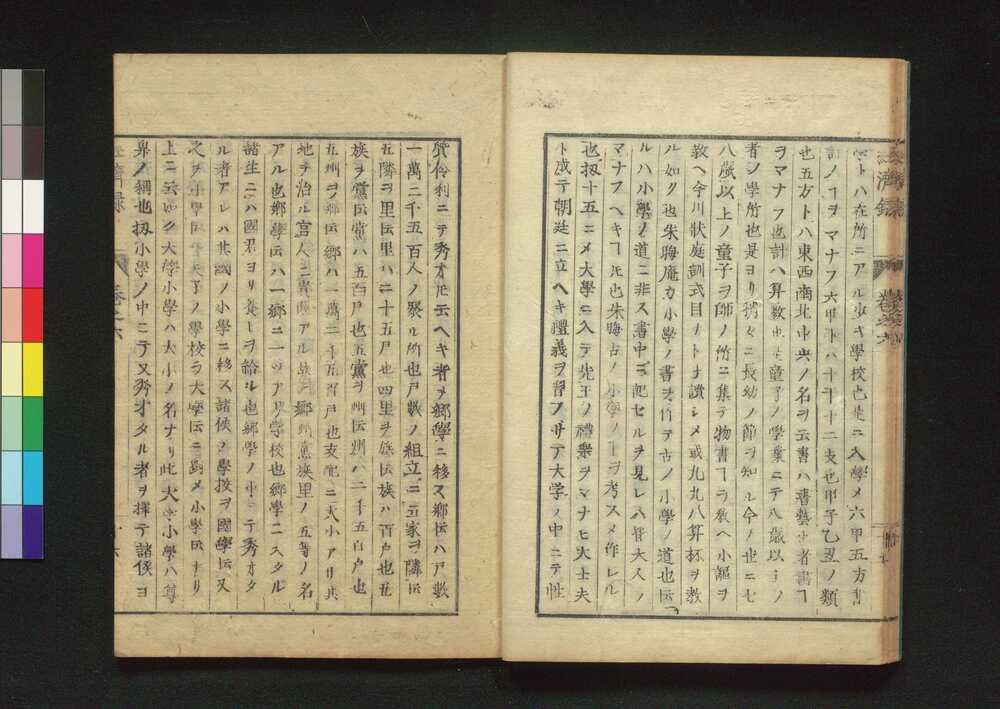 ハ在所ニアル少キ學校也是ニ入學メ六甲五方書
計ノヿヲマナフ六甲トハ十干十二支也甲子乙丑ノ類
也五方トハ東西南北中央ノ名ヲ云書ハ書藝也者書ヿ
ヲマナフ也計ハ算數也是童子ノ學業ニテ八歳以上ノ
者ノ學所也是ヨリ猶々ニ長幼ノ節ヲ知ル今ノ世ニ七
八歳以上ノ童子ヲ師ノ所ニ集テ物書ヿヲ敎ヘ小謳ヲ
敎ヘ今川狀庭訓式目ノトナ讀シメ或九九八算杯ヲ敎
ル如ク也朱晦庵カ小學ノ書ヲ作テ古ノ小學ノ道也ト云
ルハ小學ノ道ニ非ス書中ニ記セルヲ見レハ皆大人ノ
マナフヘキヿ𪜈也朱晦古ノ小學ノヿヲ考スメ作レル
也扨十五ニメ大學ニ入テ先王ノ禮樂ヲマナヒ大士夫
ト成テ朝廷ニ立ヘキ禮義ヲ習フ㪽テ大学ノ中ニテ性
質怜利ニテ秀才𪜈云ヘキ者ヲ鄉學ニ移ス鄉ト云ハ戸數
一萬二千五百人ノ聚ル所也戸數ノ組立ニ五家ヲ隣ト云
五隣ヲ里ト云里ハ二十五戸也四里ヲ族ト云族ハ百戸也五
族ヲ黨ト云黨ハ五百戸也五黨ヲ州ト云州ハ二千五百戸也
五州ヲ鄉ト云鄉ハ一萬二千五百戸也支配ニ大小アリ其
地ヲ治ル官人ニ異同アル故ニ鄉州黨族里ノ五等ノ名
アル也鄉學ト云ハ一鄉ニ一ツアリ学校也鄉學ニスタル
諸生ニハ國君ヨリ養ヒヲ給ル也鄉學ノ中ニテ秀オタ
ル者アレハ其國ノ小學ニ移ス諸侯ノ學校ヲ國學ト云又
之ヲ小學ト云天子ノ學校ヲ大學ト云ニ對メ小學ト云ナリ
上ニ云如ク大學小學ハ大小ノ名ナリ此大學小學ハ尊
卑ノ稱也扨小學ノ中ニテ又秀才タル者ヲ擇テ諸侯ヨ